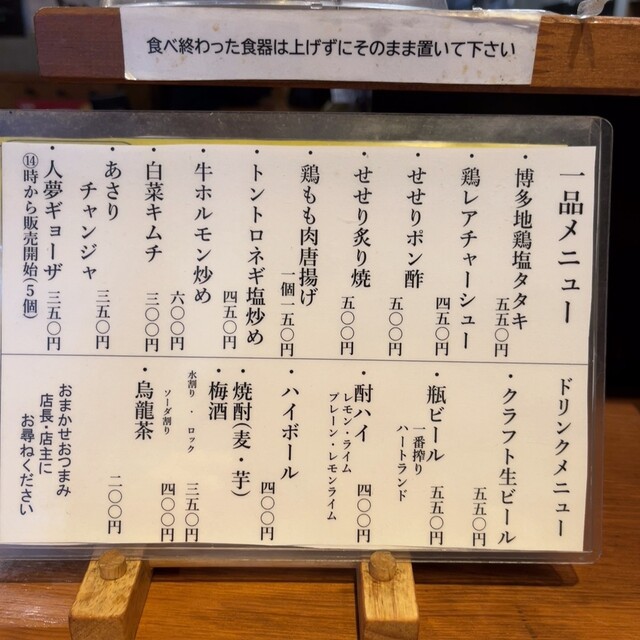 食べ終わった食器は上げずにそのまま置いて下さい
一品メニュー
・博多地鶏塩タタキ
五五〇円
・鶏レアチャーシュー
四五〇円
・せせりポン酢
五〇〇円
・せせり炙り焼
五〇〇円
・鶏もも肉唐揚げ
一個一五〇円
・トントロネギ塩炒め
四五〇円
・牛ホルモン炒め
六〇〇円
・白菜キムチ
三〇〇円
・あさり
チャンジャ
三五〇円
・人夢ギョーザ
三五〇円
⑭時から販売開始(5個)
ドリンクメニュー
・クラフト生ビール
五五〇円
・瓶ビール
一番搾り
ハートランド
五五〇円
・酎ハイ
レモン・ライム
プレーン・レモンライム
四〇〇円
・ハイボール
四〇〇円
・焼酎(麦・芋)
・梅酒
水割り・ロック
三五〇円
ソーダ割り
四〇〇円
・烏龍茶
二〇〇円
おまかせおつまみ
店長・店主に
お尋ねください